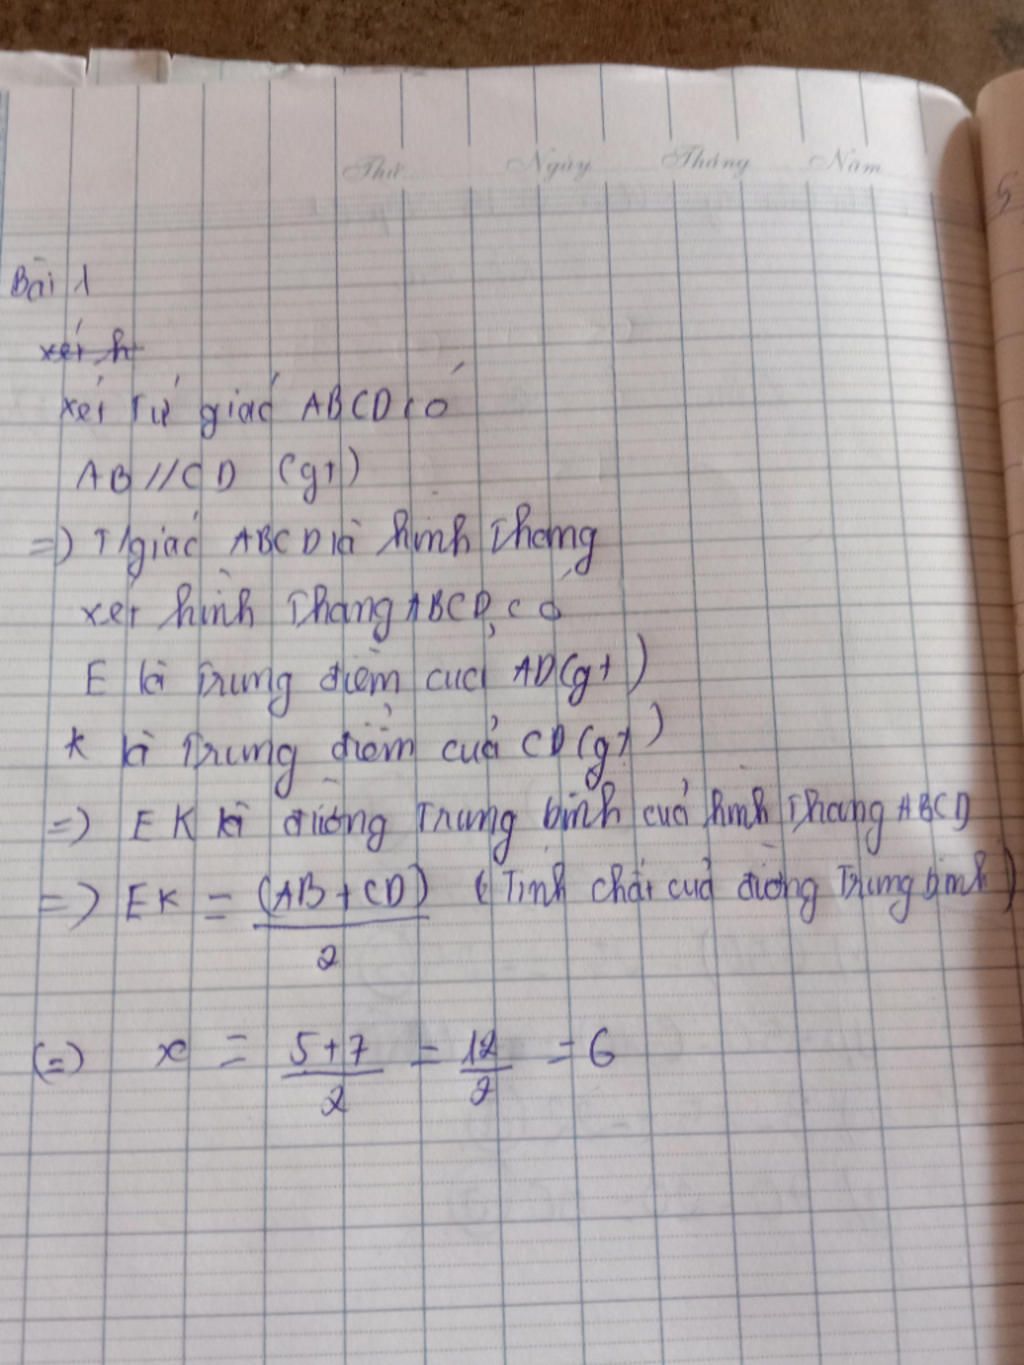 Thứ Ngày Tháng Năm
Bài 1
xét h
xét Tứ giác ABCD có
AB // CD (gt)
=) T/giác ABCD là hình Thang
xét hình Thang ABCD, có
E là Trung điểm của AD (gt)
K là Trung điểm của CD (gt)
=) EK là đường Trung bình của hình Thang ABCD
=) EK = (AB + CD) / 2 (Tính chất của đường Trung bình)
(=) x = 5+7 / 2 = 12 / 2 = 6